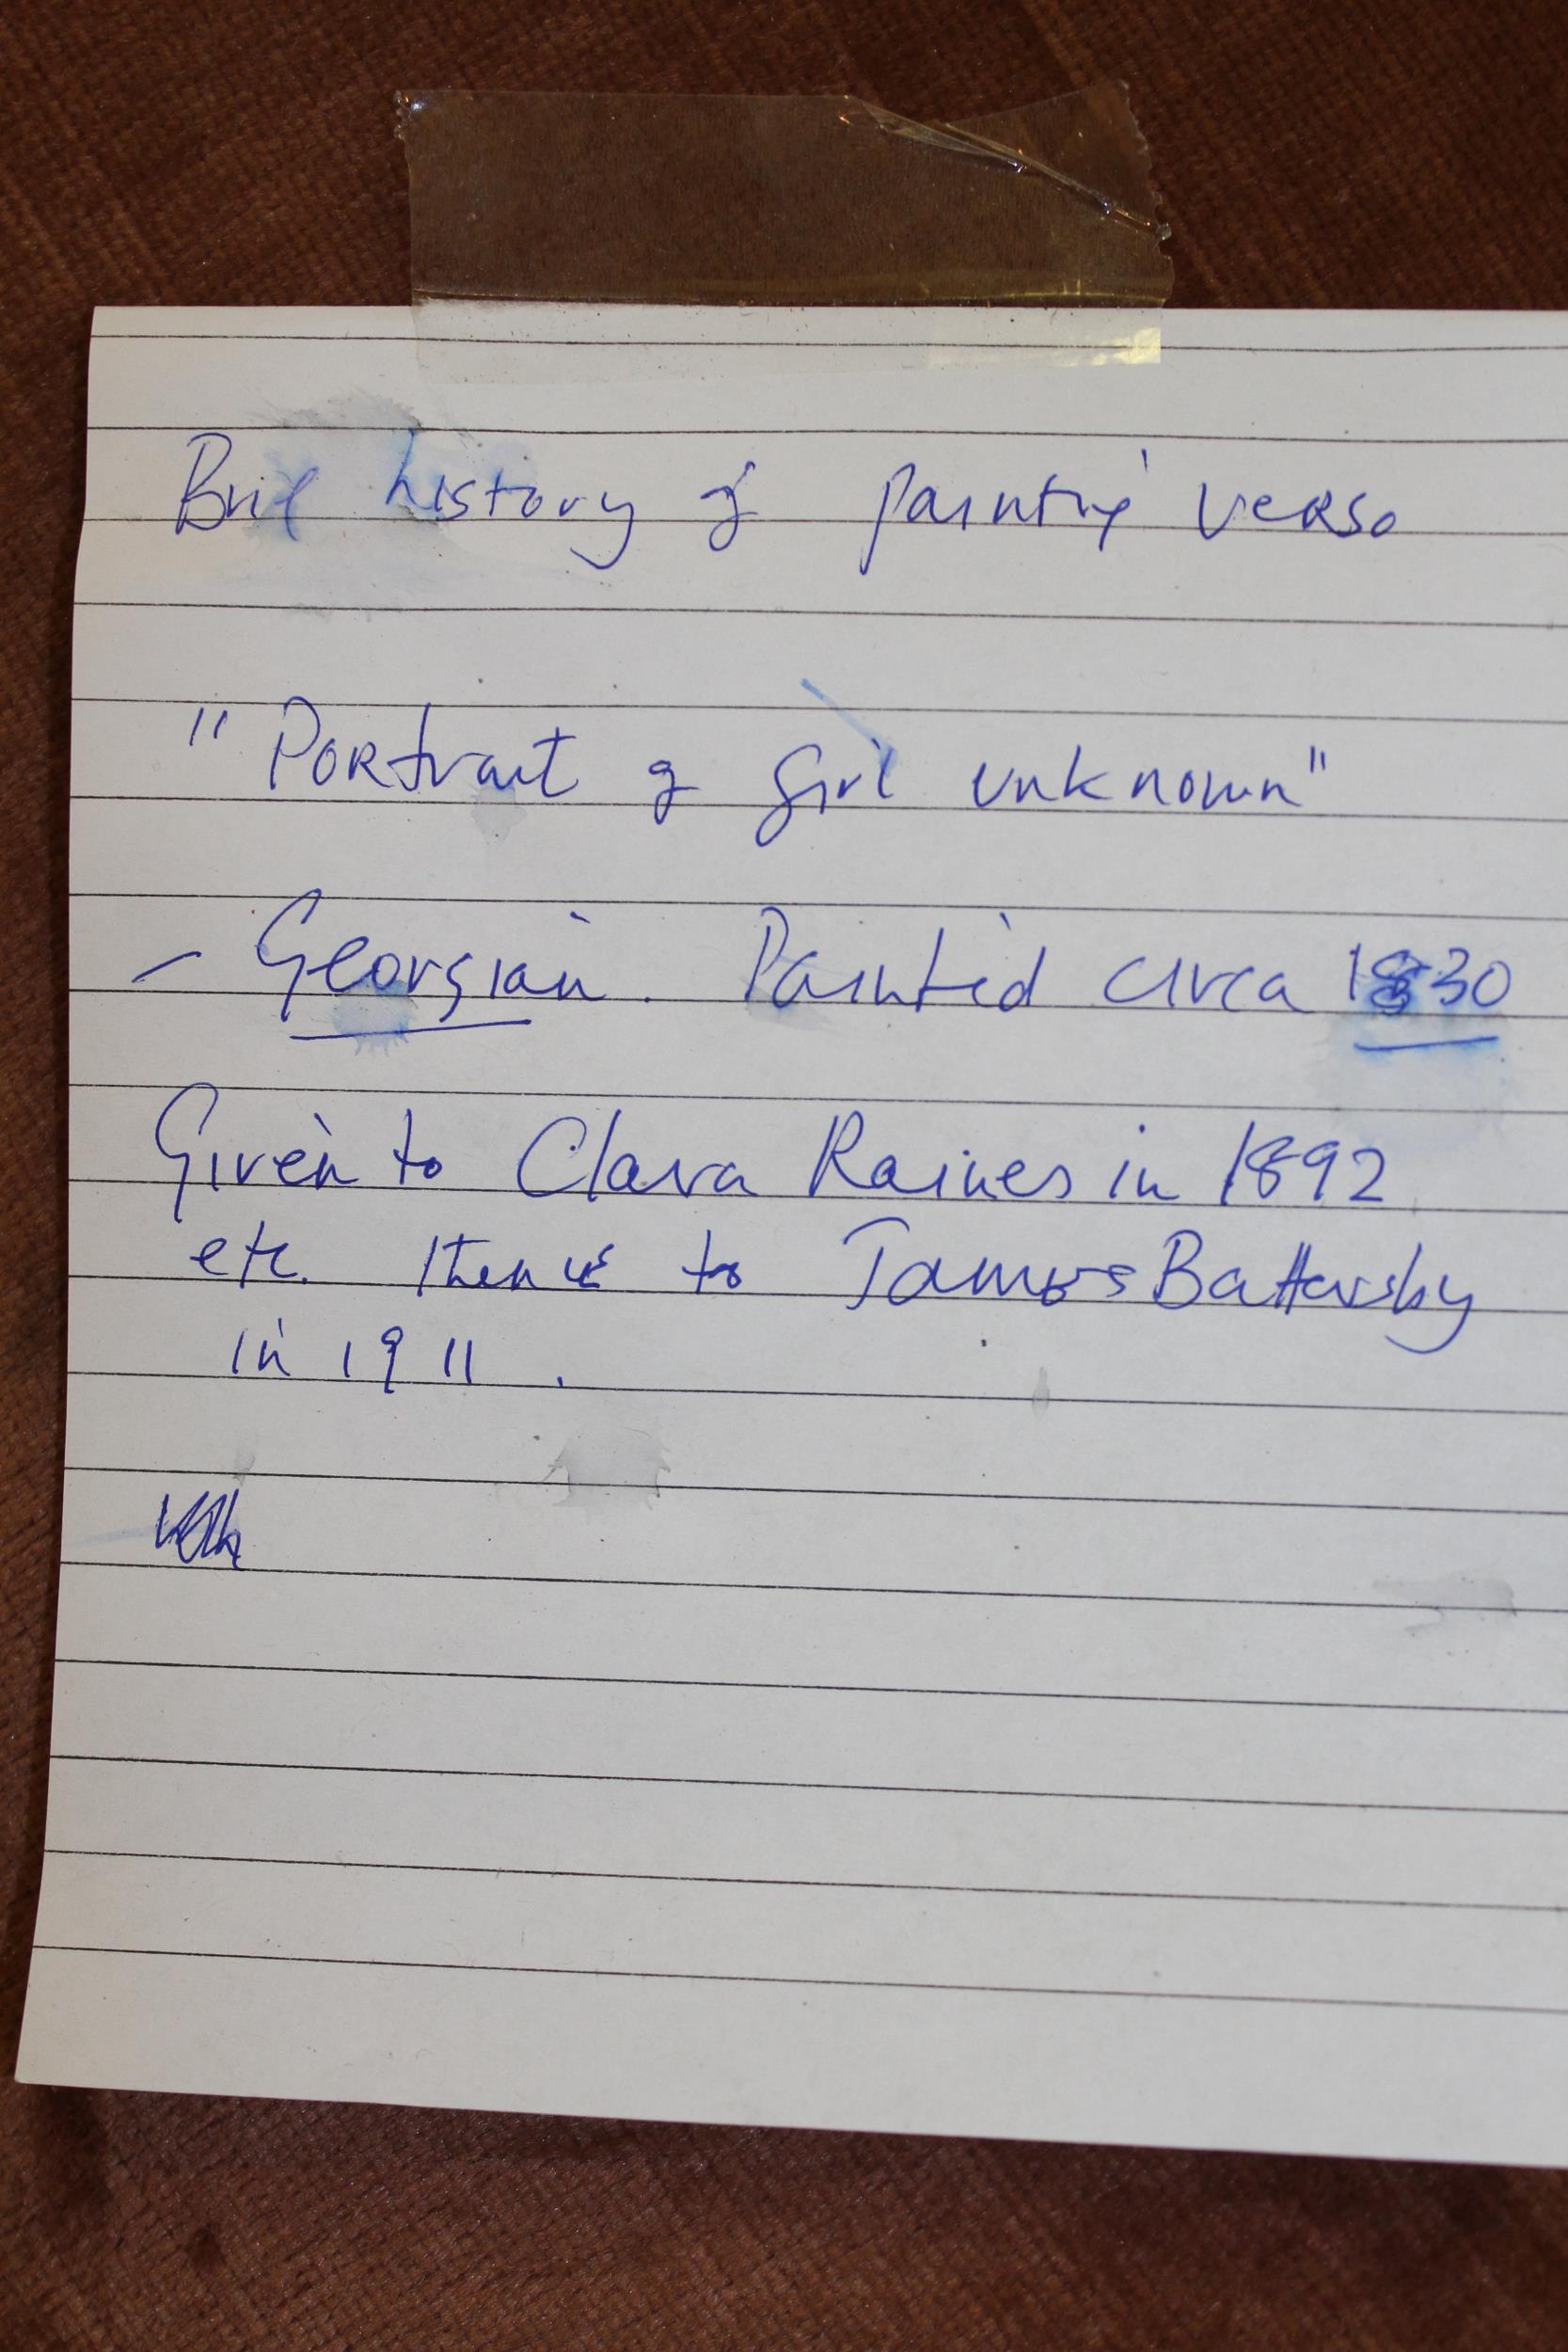 Brief history of painting verso
"Portrait of girl unknown"
- Georgian. Painted circa 1830
Given to Clara Raines in 1892
etc. thence to James Battersby
in 1911.